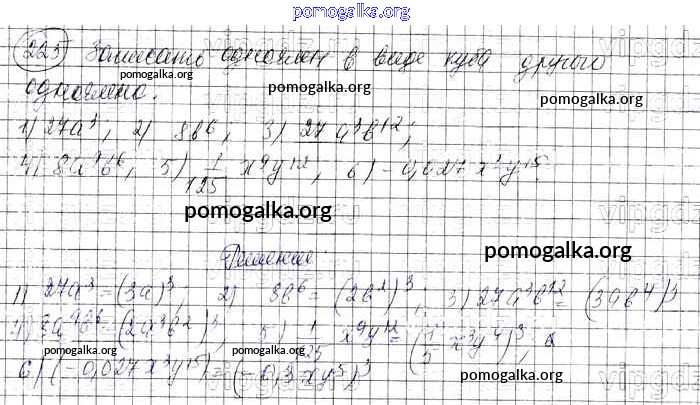 pomogalka.org
223) Записать одночлен в виде куба другого
одночлена.
pomogalka.org
pomogalka.org
pomogalka.org
1) 27a³; 2) 8b⁶; 3) 27a³b¹²;
4) 8a⁹b⁶, 5) 1/125 x⁹y¹², 6) -0,027x³y¹⁵.
pomogalka.org
Решение:
pomogalka.org
1) 27a³=(3a)³; 2) 8b⁶=(2b²)³; 3) 27a³b¹²=(3ab⁴)³
4) 8a⁹b⁶=(2a³b²)³, 5) 1/125 x⁹y¹²=(1/5 x³y⁴)³,
pomogalka.org
pomogalka.org
6) (-0,027x³y¹⁵)=(-0,3xy⁵)³
pomogalka.org